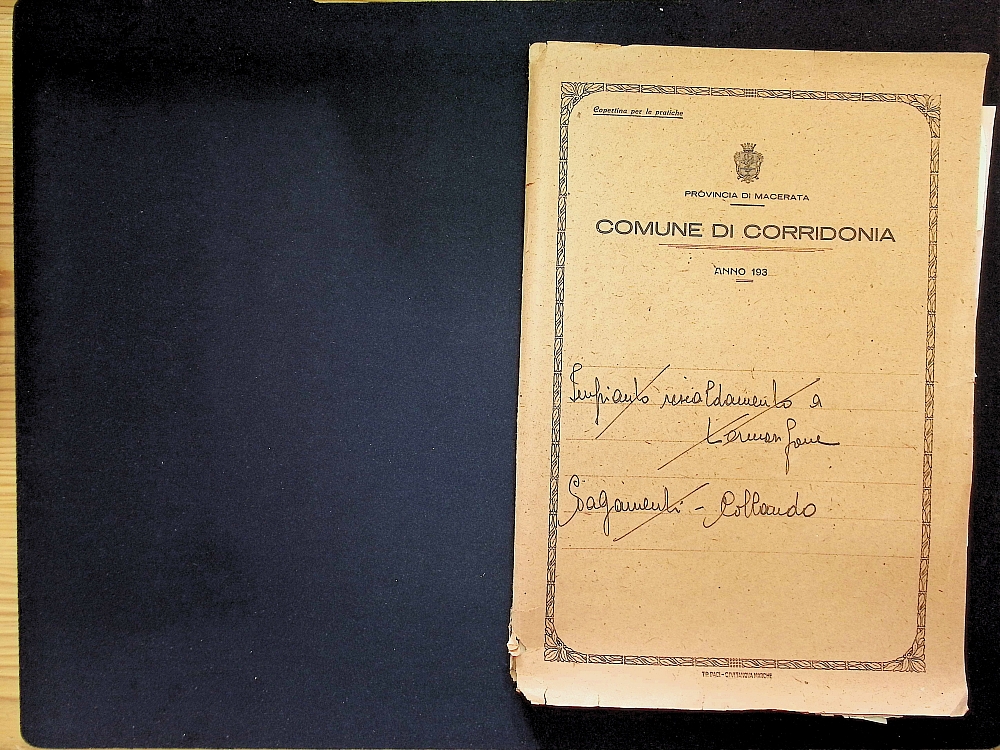 Copertina per le pratiche
PROVINCIA DI MACERATA
COMUNE DI CORRIDONIA
ANNO 193
Impianto riscaldamento a
termosifone
Pagamenti - Collaudo
TIP. PACI - CIVITANOVA MARCHE